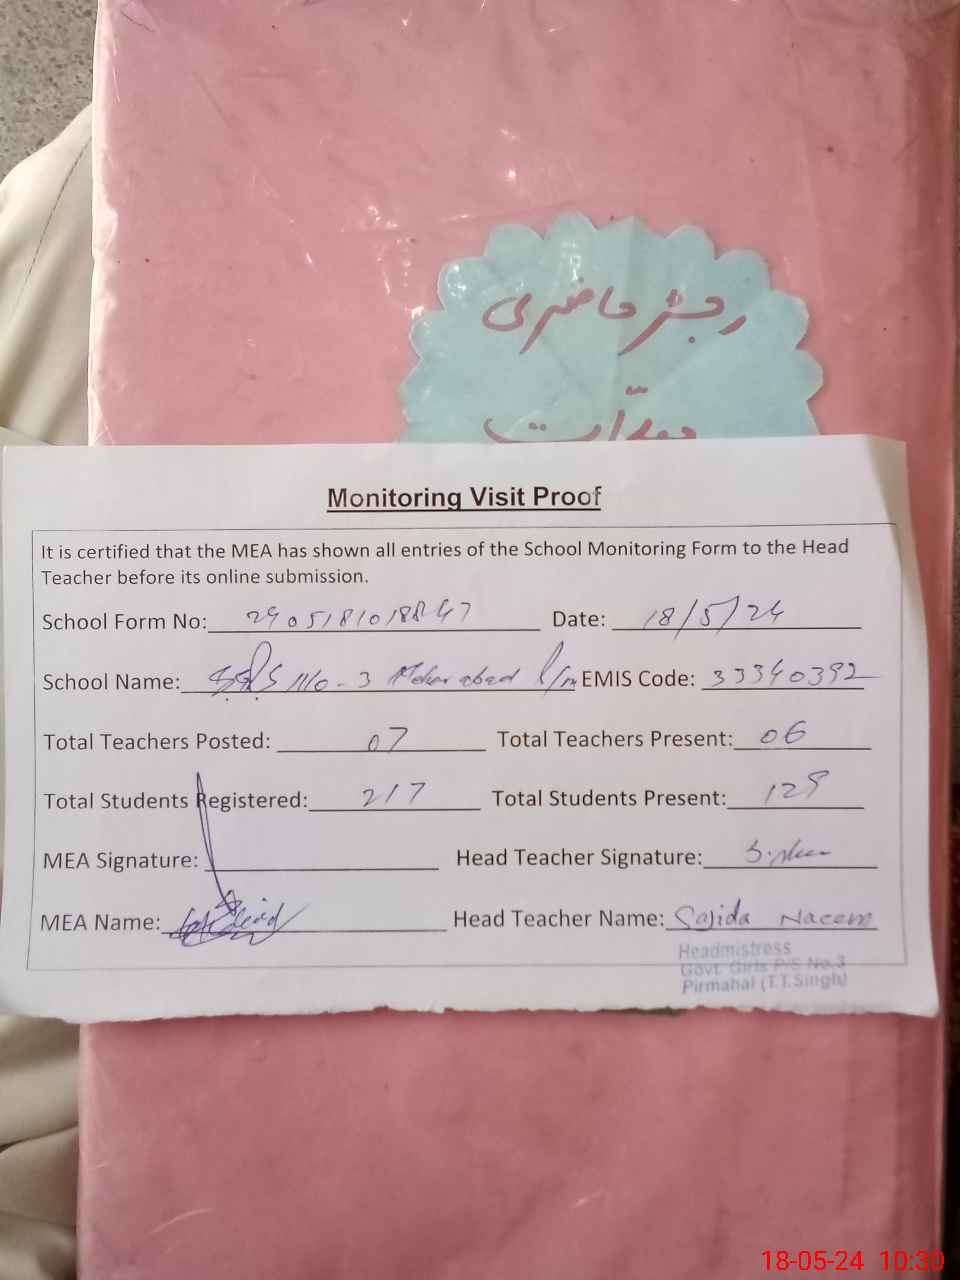 رجسٹر حاضری
Monitoring Visit Proof
It is certified that the MEA has shown all entries of the School Monitoring Form to the Head
Teacher before its online submission.
School Form No: Date: 18/5/24
School Name: No-3 EMIS Code: 33340392
Total Teachers Posted: 07 Total Teachers Present: 06
Total Students Registered: 217 Total Students Present: 129
MEA Signature: Head Teacher Signature:
MEA Name: Head Teacher Name: Sajida Naeem
Headmistress
Govt. Girls P/S No.3
Pirmahal (T.T.Singh)
18-05-24 10:30